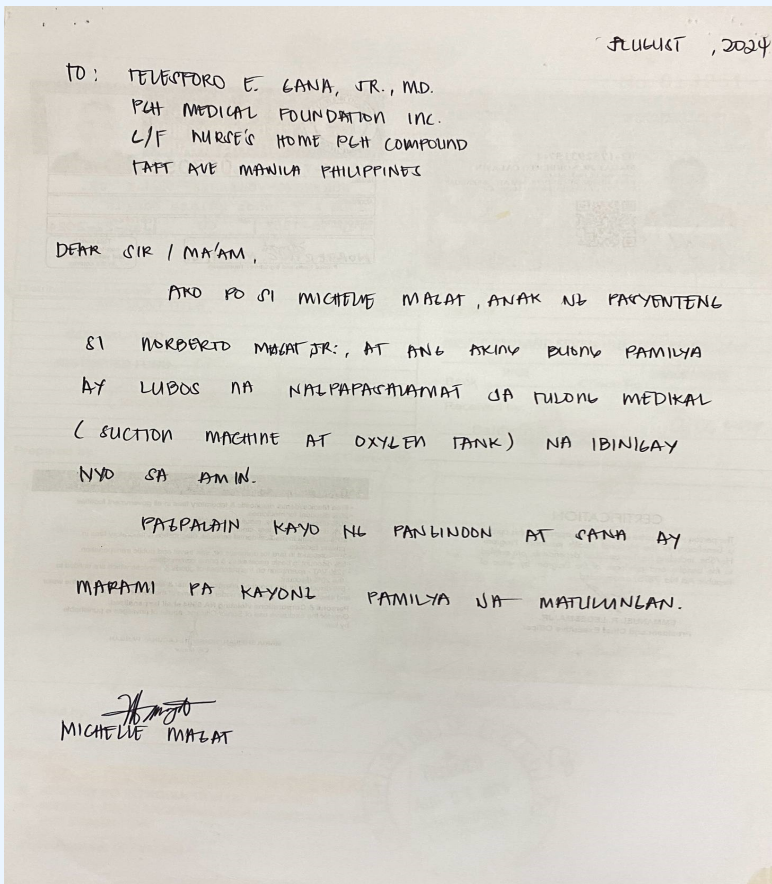 AUGUST , 2024
TO: TELESFORO E. GANA, JR., MD.
PGH MEDICAL FOUNDATION INC.
G/F NURSE'S HOME PGH COMPOUND
TAFT AVE MANILA PHILIPPINES
DEAR SIR / MA'AM,
AKO PO SI MICHELLE MAGAT, ANAK NG PASYENTENG
SI NORBERTO MAGAT JR., AT ANG AKING BUONG PAMILYA
AY LUBOS NA NAGPAPASALAMAT SA TULONG MEDIKAL
(SUCTION MACHINE AT OXYGEN TANK) NA IBINIGAY
NYO SA AMIN.
PAGPALAIN KAYO NG PANGINOON AT SANA AY
MARAMI PA KAYONG PAMILYA NA MATULUNGAN.
MICHELLE MAGAT